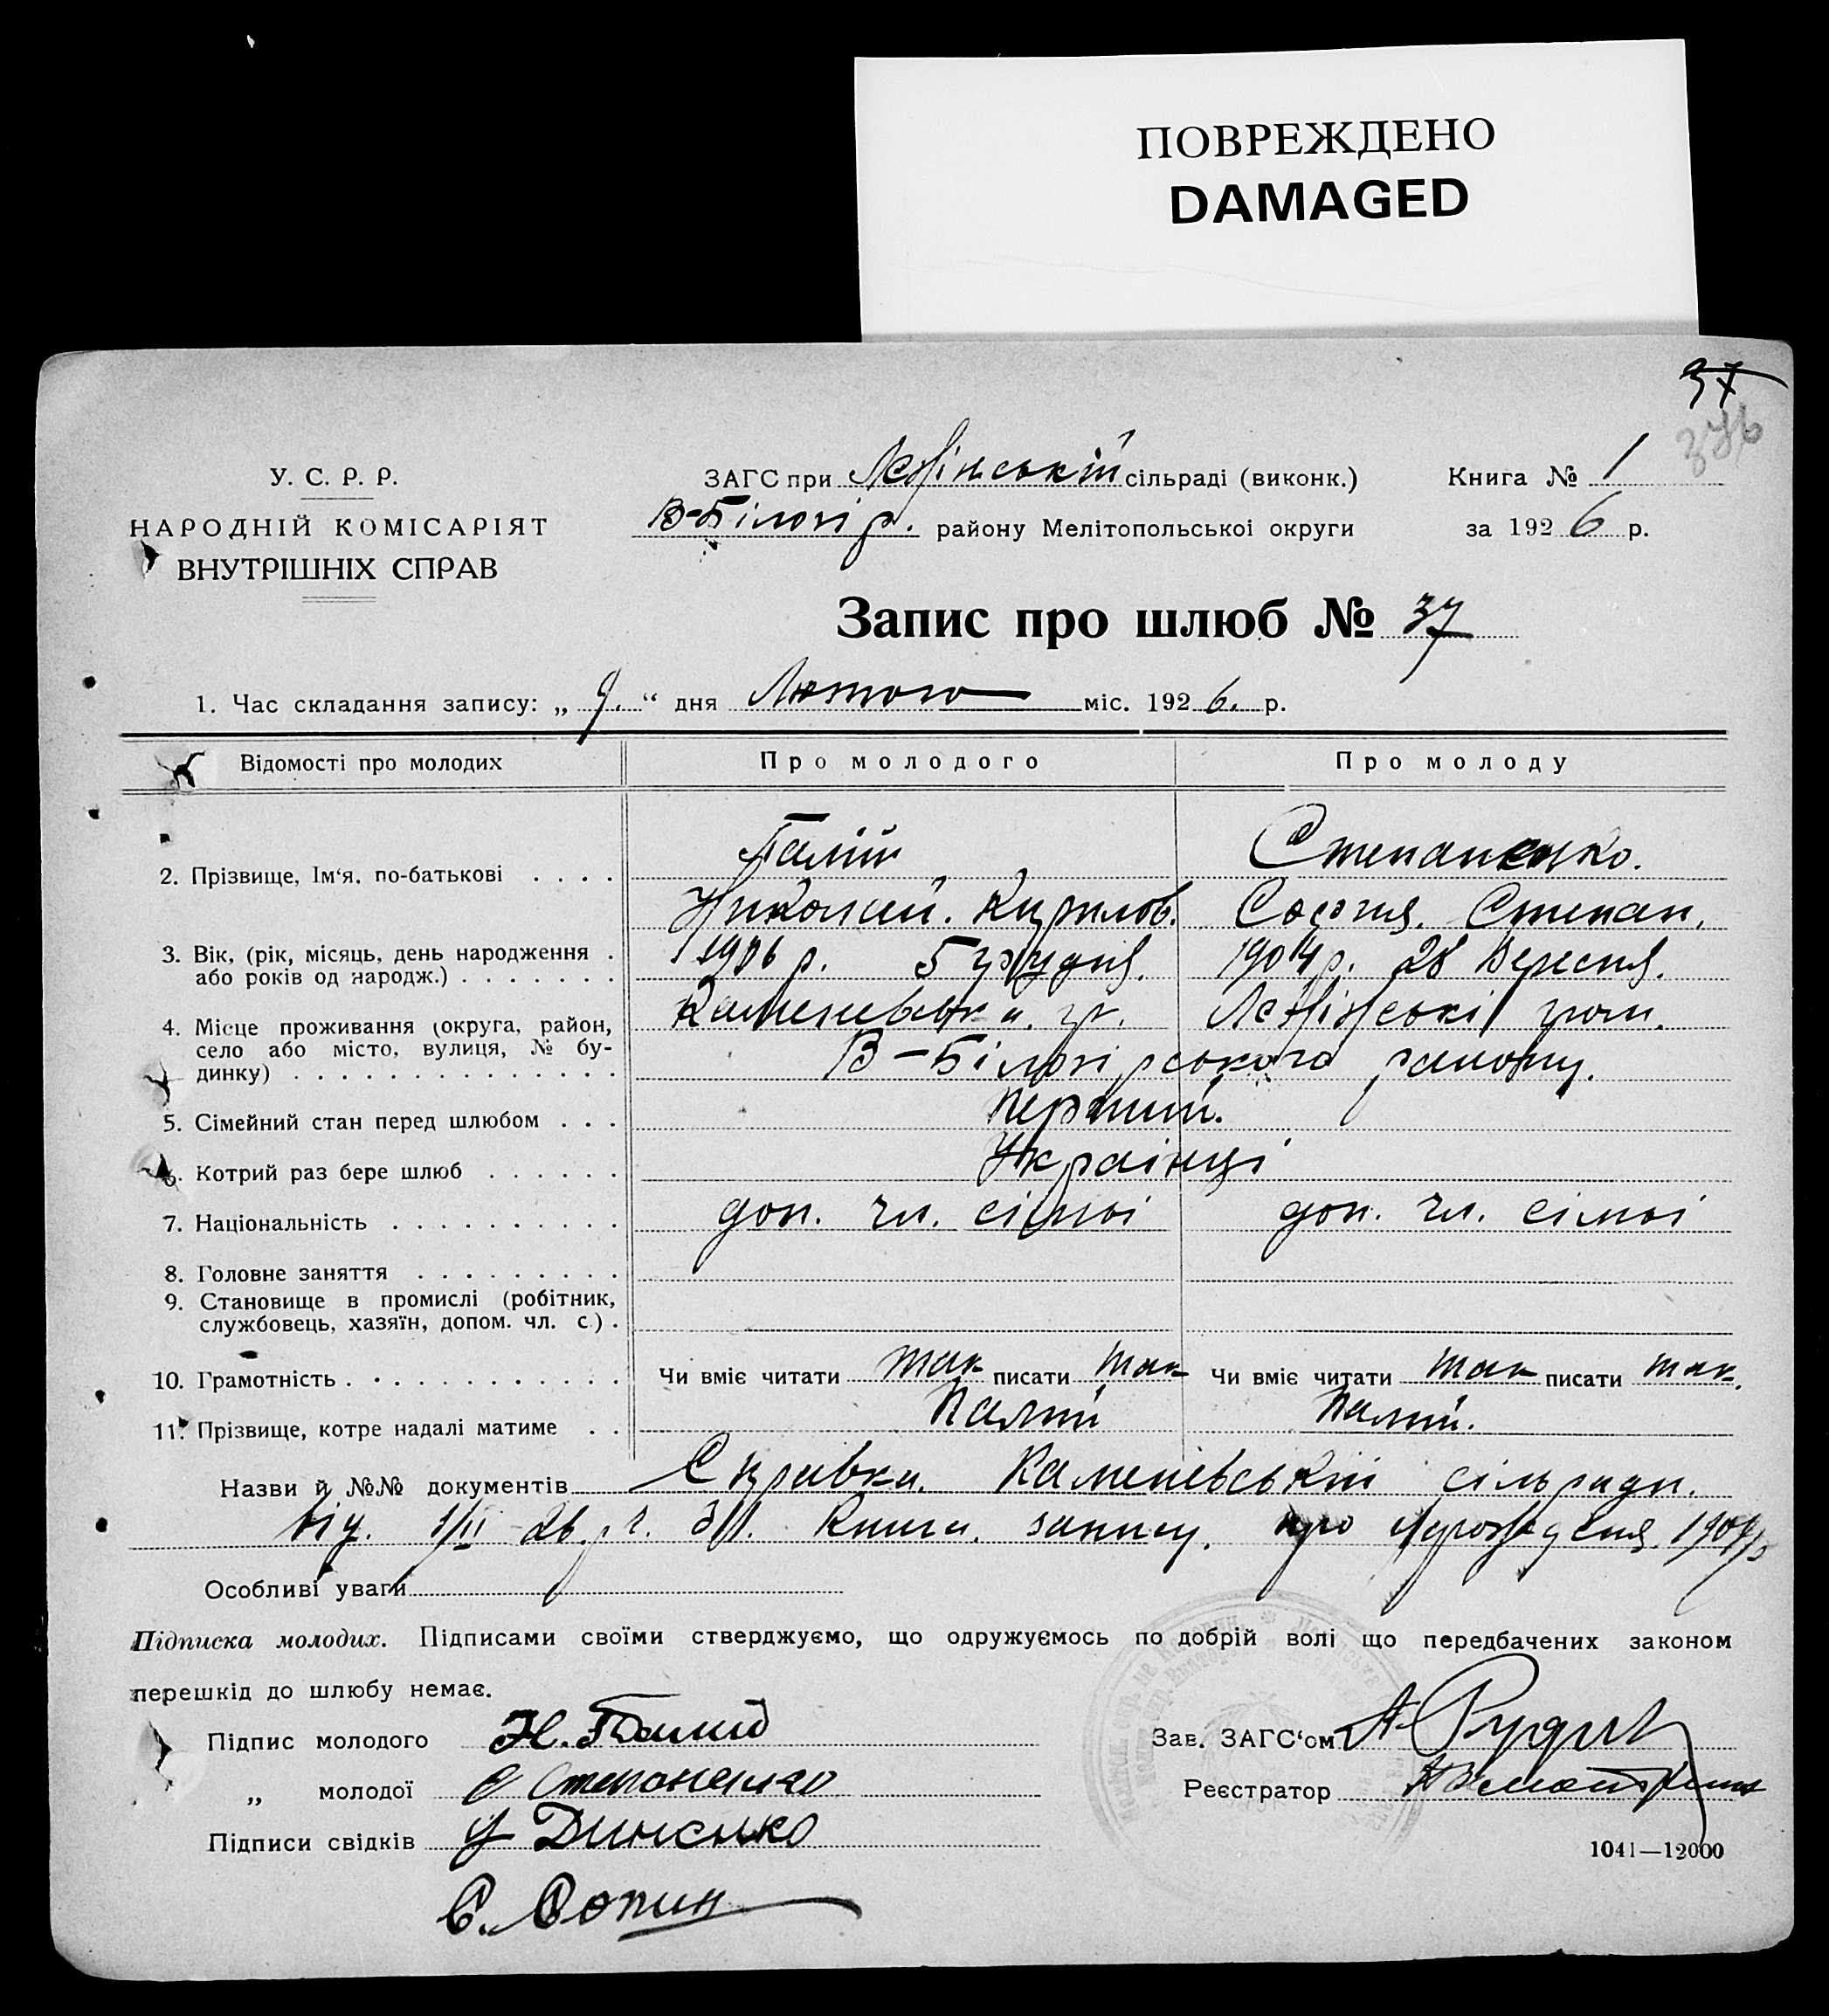 ПОВРЕЖДЕНО
DAMAGED
37
376
У. С. Р. Р.
НАРОДНІЙ КОМІСАРІЯТ
ВНУТРІШНІХ СПРАВ
ЗАГС при сільраді (виконк.)
В-Білозір. району Мелітопольської округи
Книга № 1
за 1926 р.
Запис про шлюб № 37
1. Час складання запису: „ 9. “ дня Лютого міс. 1926. р.
Відомості про молодих
Про молодого
Про молоду
2. Прізвище, Ім'я, по-батькові . . . .
Палій
Степаненко.
Николай. Кирилов.
Софія. Степан.
3. Вік, (рік, місяць, день народження .
або років од народж.) . . . . . . .
1906 р. 5 грудня.
1904 р. 28 Вересня.
4. Місце проживання (округа, район,
село або місто, вулиця, № бу-
динку) . . . . . . . . . . . . . .
В-Білозірського району.
5. Сімейний стан перед шлюбом . . .
Перший.
6. Котрий раз бере шлюб . . . . . .
Українці
7. Національність . . . . . . . . . .
доп. чл. сімьі
доп. чл. сімьі
8. Головне заняття . . . . . . . . .
9. Становище в промислі (робітник,
службовець, хазяїн, допом. чл. с.) .
10. Грамотність . . . . . . . . . . . .
Чи вміє читати так писати так
Чи вміє читати так писати так.
11. Прізвище, котре надалі матиме . .
Палій
Палій.
Назви й №№ документів Справка. Каменівській сільради.
від. 1/II 26 р. Книги. запису. про 1904 р
Особливі уваги
Підписка молодих. Підписами своїми стверджуємо, що одружуємось по добрій волі що передбачених законом
перешкід до шлюбу немає.
Підпис молодого Н. Палий
„ молодої С Степоненко
Підписи свідків Диненко
Зав. ЗАГС'ом
Реєстратор
1041—12000